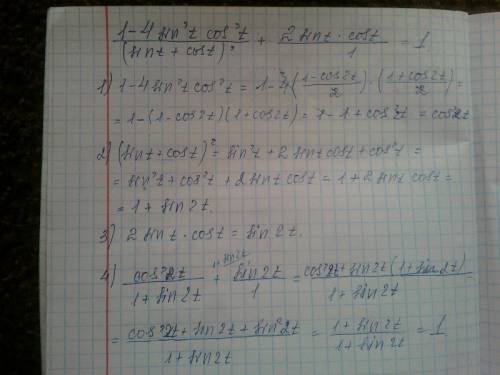 (1-4 sin²t cos²t)/(sint + cost)² + (2 sint · cost)/1 = 1
1) 1-4 sin²t cos²t = 1-4((1-cos2t)/2) · ((1+cos2t)/2) =
= 1-(1-cos2t)(1+cos2t) = 1-1+cos²2t = cos²2t
2) (sint+cost)² = sin²t + 2 sint cost + cos²t =
= sin²t + cos²t + 2 sint cost = 1+2 sint cost =
= 1 + sin 2t.
3) 2 sint · cost = sin 2t.
4) cos²2t/(1+sin2t) + sin2t/1 = (cos²2t + sin2t (1+sin2t))/(1+sin2t)
= (cos²2t + sin2t + sin²2t)/(1+sin2t) = (1+sin2t)/(1+sin2t) = 1